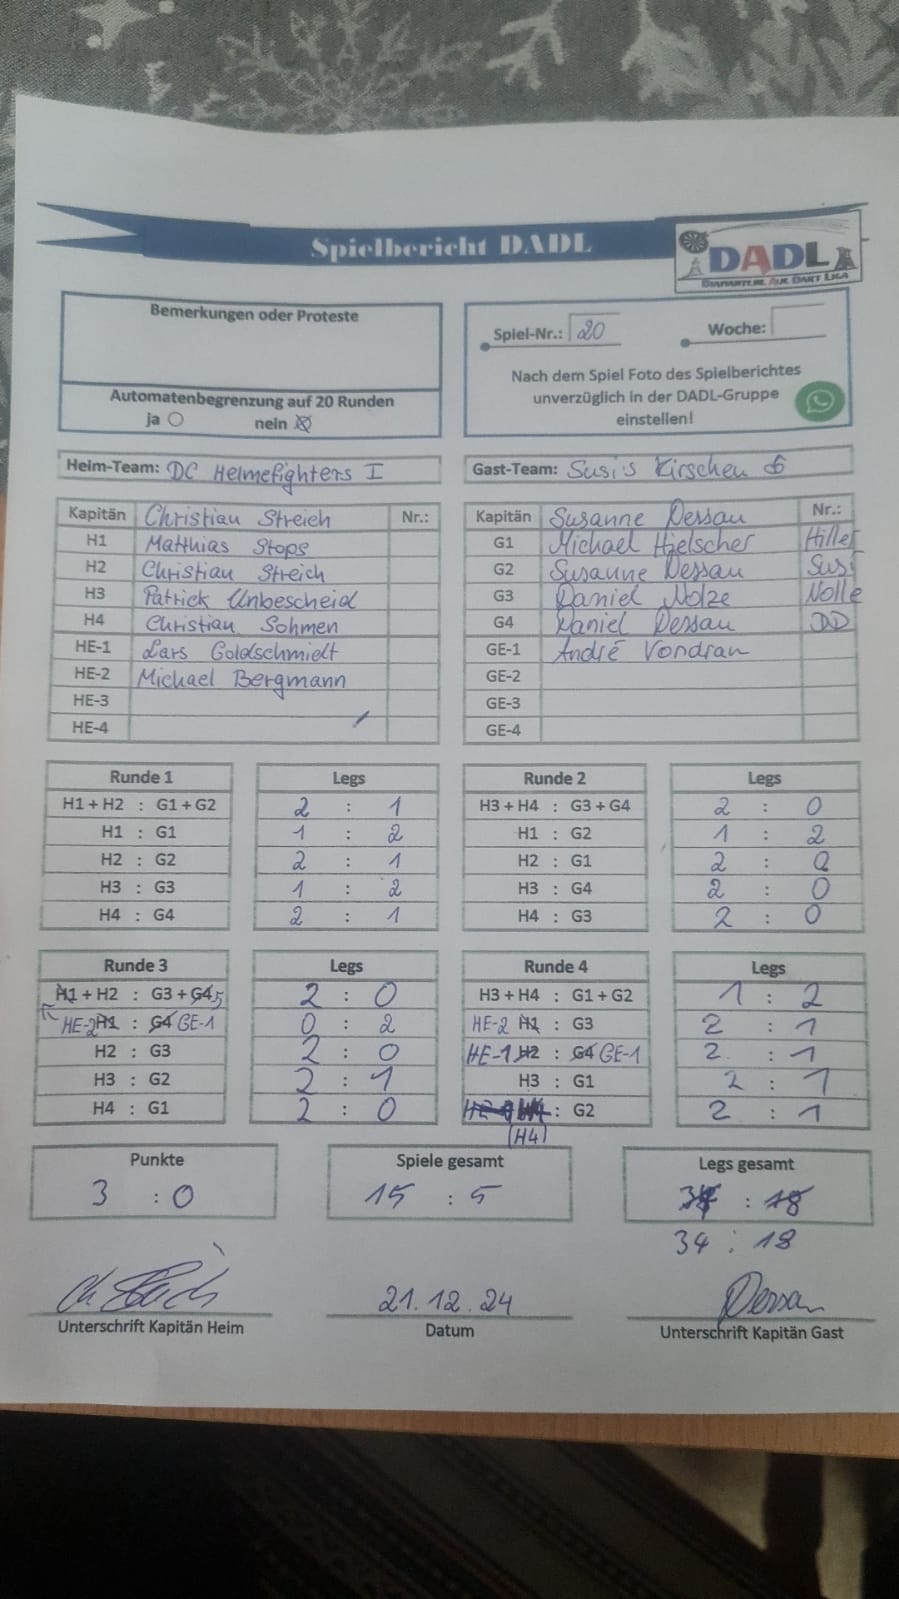 Spielbericht DADL
DADL
Bemerkungen oder Proteste
Automatenbegrenzung auf 20 Runden
ja nein
Spiel-Nr.: 20 Woche:
Nach dem Spiel Foto des Spielberichtes
unverzüglich in der DADL-Gruppe
einstellen!
Heim-Team: DC Helmefighters I
Gast-Team: Susi's Kirschen
Kapitän Christian Streich Nr.:
H1 Matthias Stops
H2 Christian Streich
H3 Patrick Unbescheid
H4 Christian Sohmen
HE-1 Lars Goldschmidt
HE-2 Michael Bergmann
HE-3
HE-4
Kapitän Susanne Dessau Nr.:
G1 Michael Hielscher Hiller
G2 Susanne Dessau Susi
G3 Daniel Nolze Nolle
G4 Daniel Dessau DD
GE-1 André Vondran
GE-2
GE-3
GE-4
Runde 1 Legs
H1 + H2 : G1 + G2 2 : 1
H1 : G1 1 : 2
H2 : G2 2 : 1
H3 : G3 1 : 2
H4 : G4 2 : 1
Runde 2 Legs
H3 + H4 : G3 + G4 2 : 0
H1 : G2 1 : 2
H2 : G1 2 : 0
H3 : G4 2 : 0
H4 : G3 2 : 0
Runde 3 Legs
H1 + H2 : G3 + G4 2 : 0
HE-2 H1 : G4 GE-1 0 : 2
H2 : G3 2 : 0
H3 : G2 2 : 1
H4 : G1 2 : 0
Runde 4 Legs
H3 + H4 : G1 + G2 1 : 2
HE-2 H1 : G3 2 : 1
HE-1 H2 : G4 GE-1 2 : 1
H3 : G1 2 : 1
: G2 2 : 1
H4
Punkte
3 : 0
Spiele gesamt
15 : 5
Legs gesamt
: 18
34 : 18
21.12.24
Dessau
Unterschrift Kapitän Heim
Datum
Unterschrift Kapitän Gast